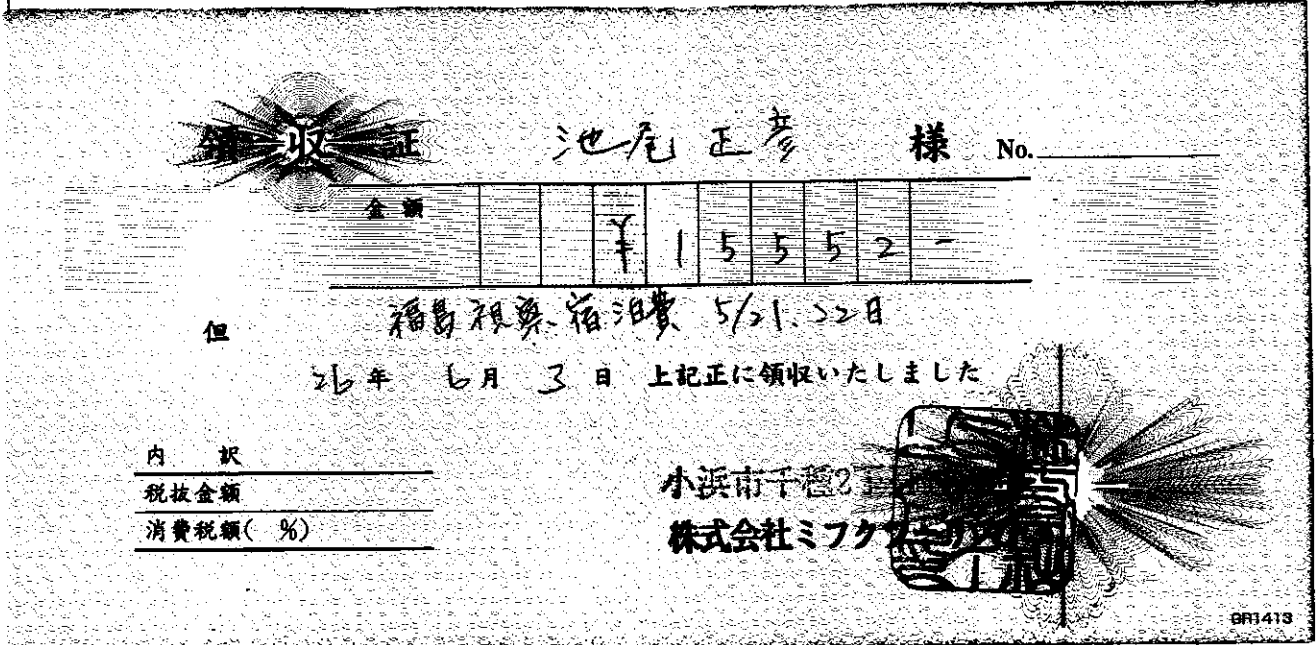 領収証 池尾正彦 様 No.
金額 ¥15552-
但 福島視察宿泊費 5/21.22日
26年 6月 3日 上記正に領収いたしました
内訳
税抜金額
消費税額( %)
小浜市千種2丁目
株式会社ミフク
GR1413